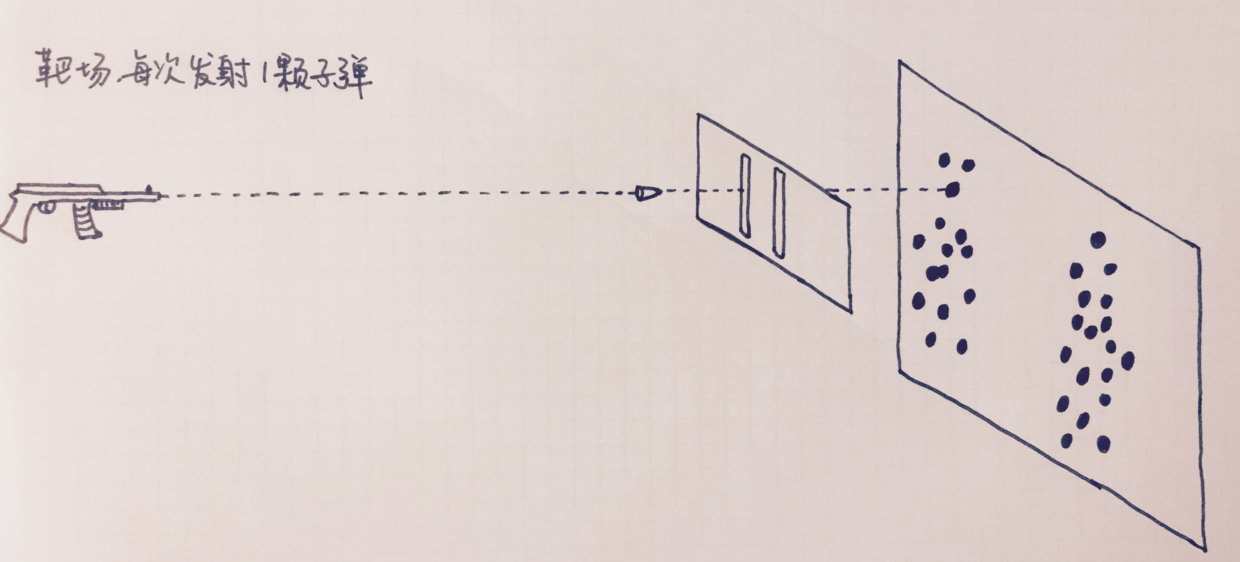 靶场,每次发射1颗子弹